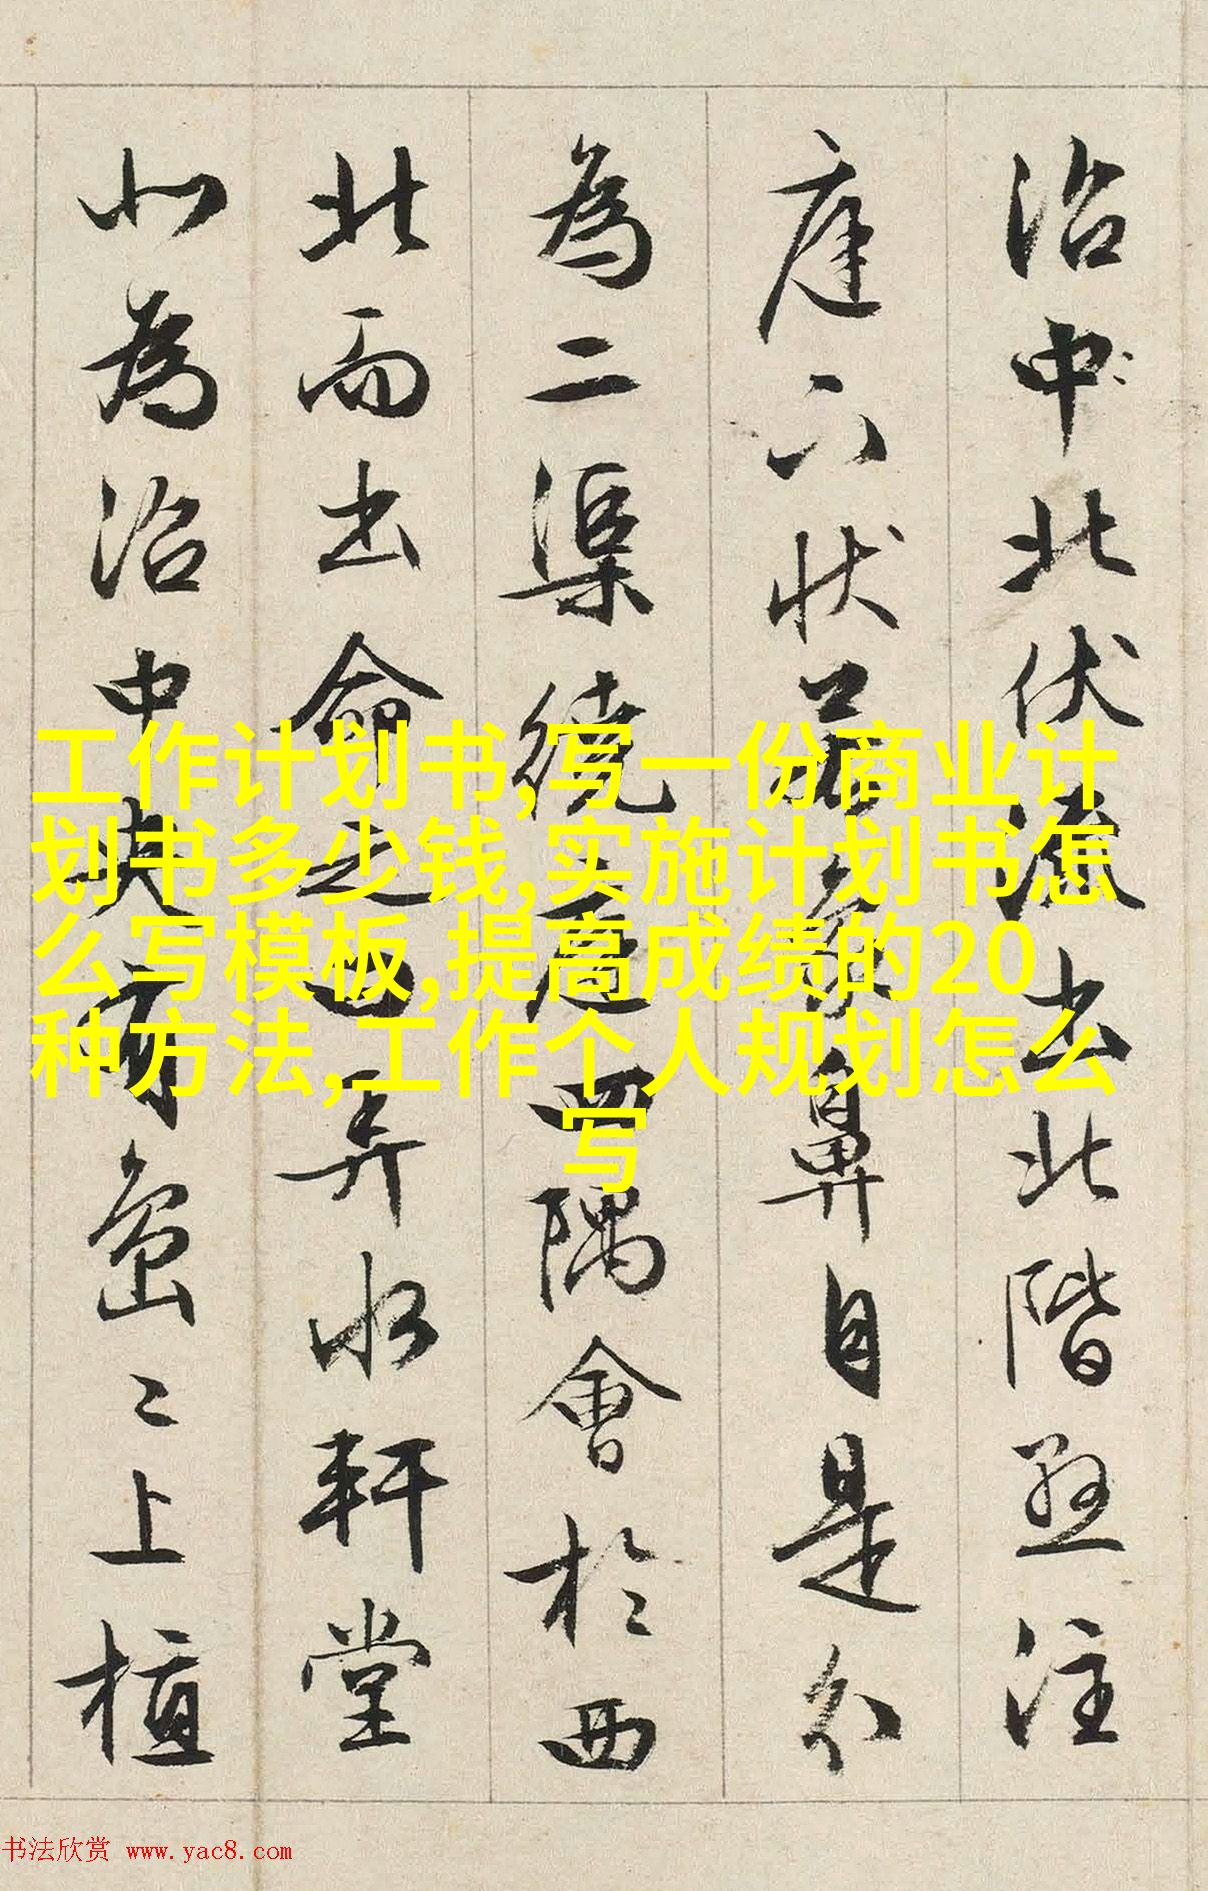 沼中北伏流出北階懸注
庭下狀若象鼻自是分
為二渠繞庭四隅會於西
北而出命之曰弄水軒堂
北為沼中央有島〻上植
工作计划书,写一份商业计
划书多少钱,实施计划书怎
么写模板,提高成绩的20
种方法,工作个人规划怎么
写
书法欣赏 www.yac8.com